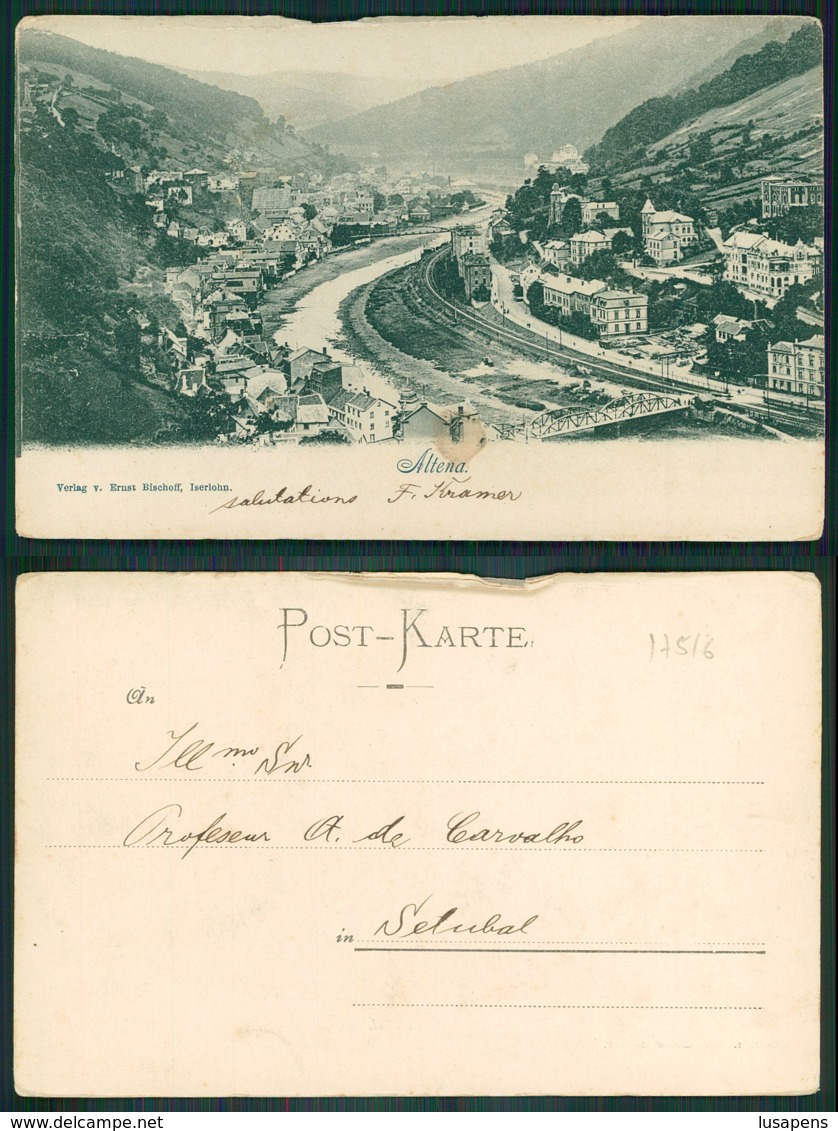 Altena.
Verlag v. Ernst Bischoff, Iserlohn.
salutations F. Kramer
POST-KARTE
175/6
An
Ill.mo Snr
Profeseur A. de Carvalho
in Setubal
lusapens